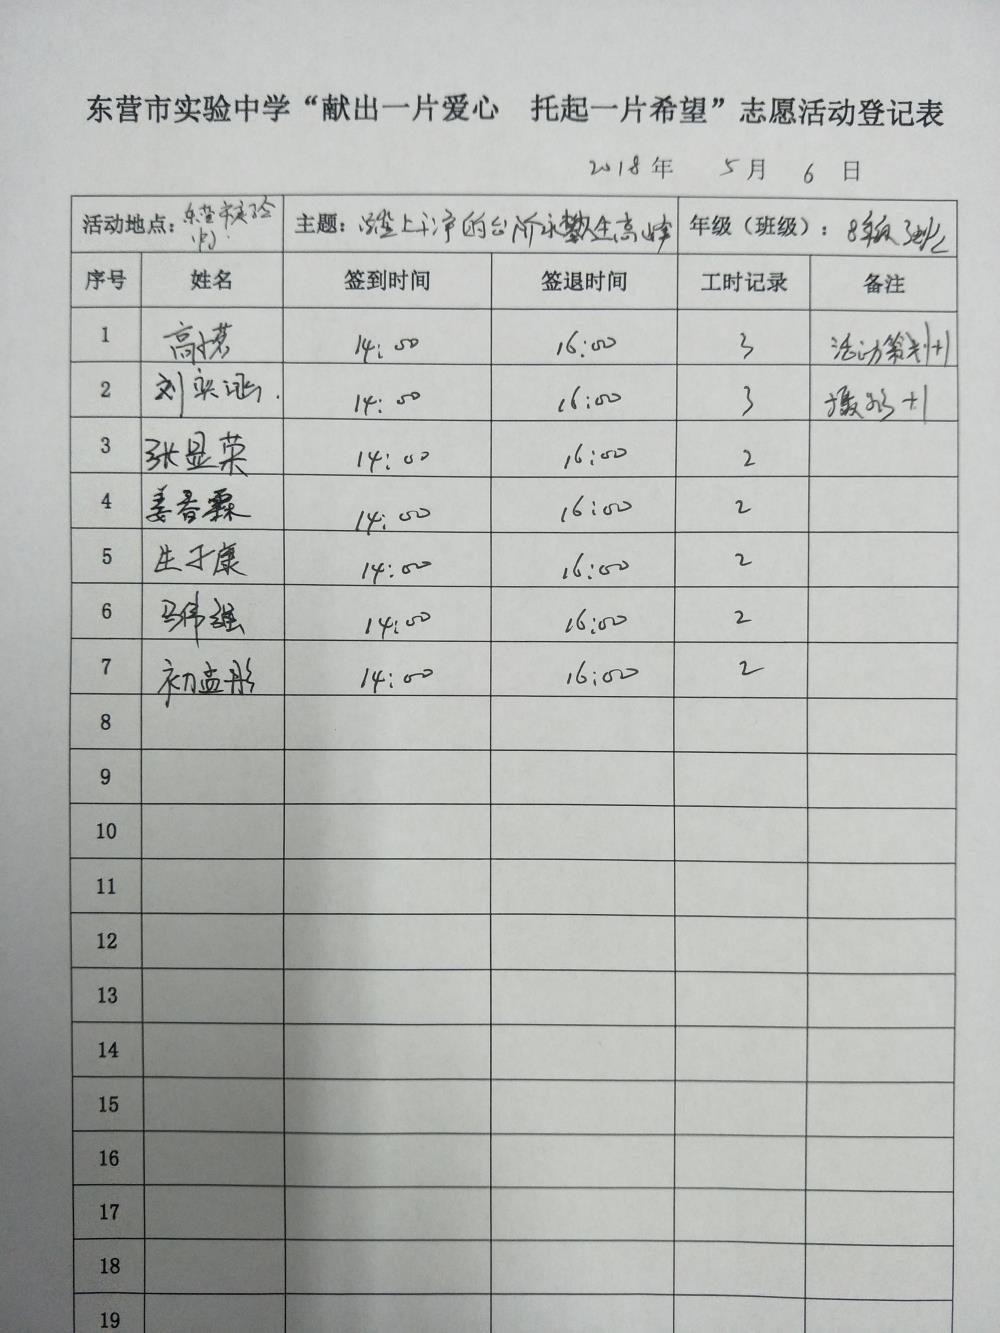 东营市实验中学“献出一片爱心 托起一片希望”志愿活动登记表
2018年 5月 6日
活动地点：东营市实验 主题：踏上干净的台阶 高峰 年级（班级）：8年级3班
序号 姓名 签到时间 签退时间 工时记录 备注
1 高 14:00 16:00 3 活动策划+1
2 刘奕涵 14:00 16:00 3 摄影+1
3 张显荣 14:00 16:00 2
4 姜春霖 14:00 16:00 2
5 生子康 14:00 16:00 2
6 马伟强 14:00 16:00 2
7 初孟彤 14:00 16:00 2
8
9
10
11
12
13
14
15
16
17
18
19